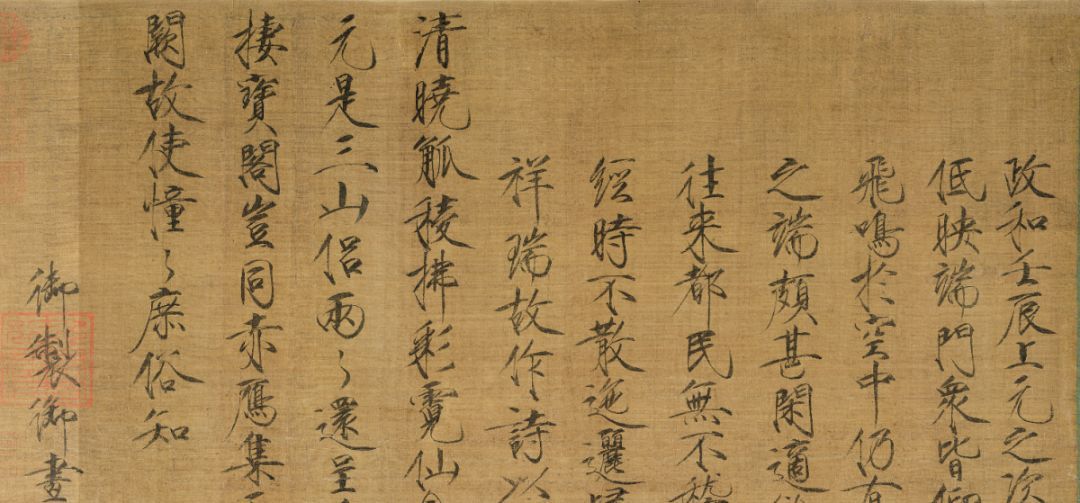 政和壬辰上元之次
低映端門衆皆仰
飛鳴於空中仍有
之端頗甚閑適
往来都民無不稽
經時不散迤邐
祥瑞故作詩以
清曉觚稜拂彩霓仙
元是三山侣兩〻還呈
棲寶閣豈同赤鴈集
闕故使憧〻庶俗知
御製御畫